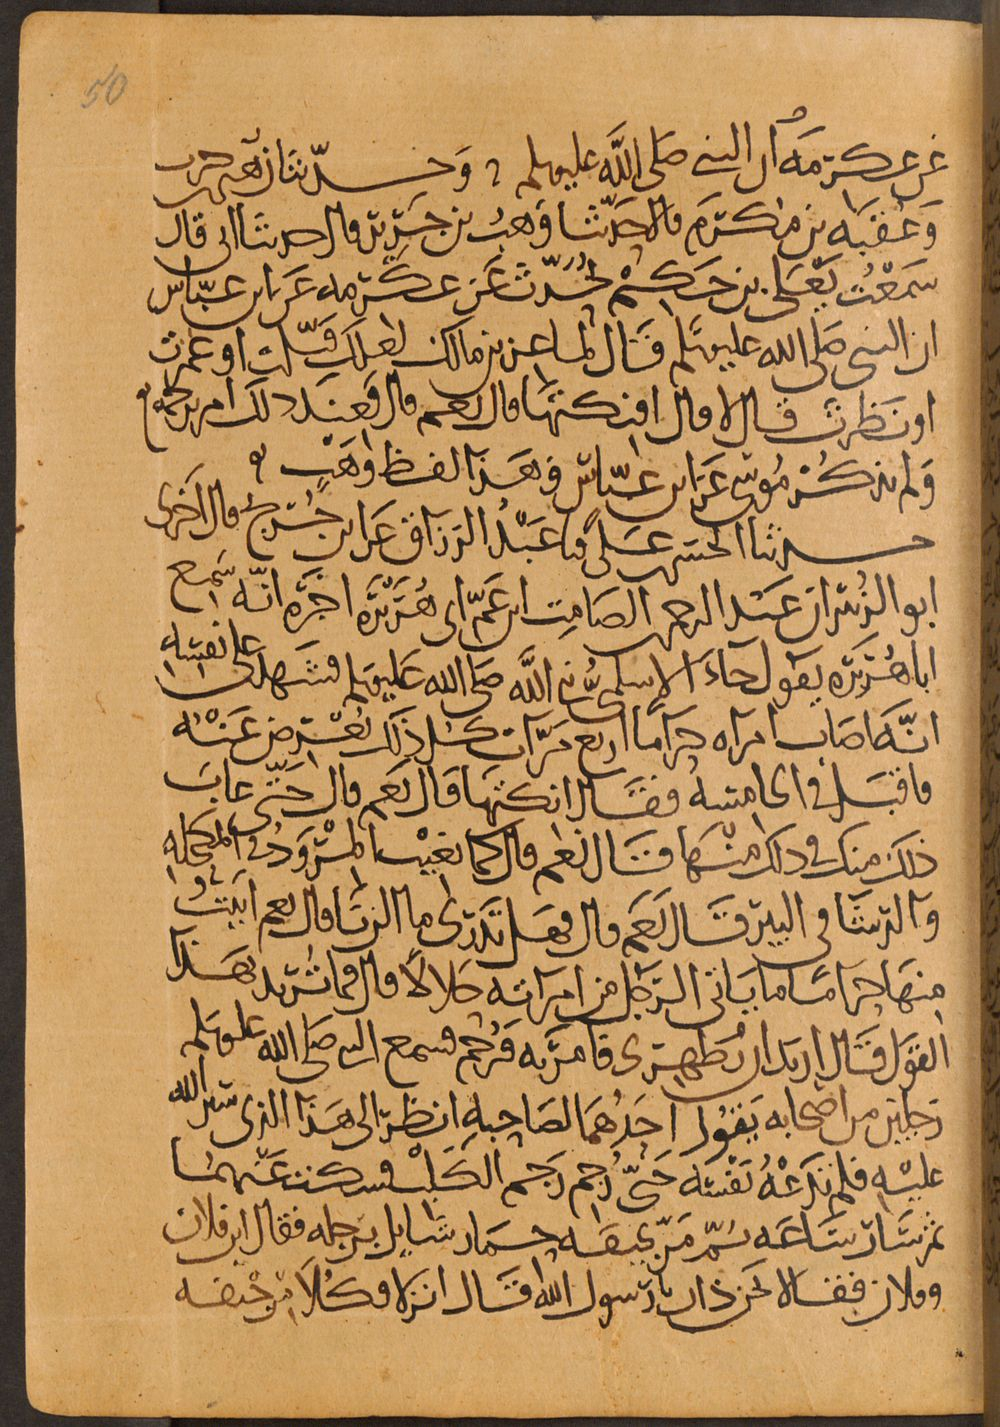 50
عن عكرمة أن النبي صلى الله عليه وسلم ؟ وحدثنا زهير بن حرب
وعقبة بن مكرم قالا حدثنا وهب بن جرير قال حدثنا ابي قال
سمعت يعلى بن حكيم يحدث عن عكرمه عن ابن عباس
ان النبي صلى الله عليه وسلم قال لماعز بن مالك لعلك قبلت او غمزت
او نظرت قال لا قال افنكتها قال نعم قال فعند ذلك امر برجمه
ولم يذكر موسى عن ابن عباس وهذا لفظ وهب
حدثنا الحسن بن علي نا عبد الرزاق عن ابن جريج قال اخبرني
ابو الزبير ان عبد الرحمن بن الصامت ابن عم ابي هريرة اخبره انه سمع
ابا هريره يقول جاء الاسلمي نبي الله صلى الله عليه وسلم فشهد على نفسه
انه اصاب امراه حراما اربع مرات كل ذلك يعرض عنه
فاقبل في الخامسه فقال انكتها قال نعم قال حتى غاب
ذلك منك في ذلك منها قال نعم قال كما يغيب المرود في المكحله
والرشا في البير قال نعم قال فهل تدري ما الزنا قال نعم اتيت
منها حراما ما ياتي الرجل من امراته حلالا قال فما تريد بهذا
القول قال اريد ان تطهرني فامر به فرجم فسمع النبي صلى الله عليه وسلم
رجلين من اصحابه يقول احدهما لصاحبه انظر الى هذا الذي ستر الله
عليه فلم تدعه نفسه حتى رجم رجم الكلب فسكت عنهما
ثم سار ساعه ثم مر بجيفه حمار شايل برجله فقال اين فلان
وفلان فقالا نحن ذان يا رسول الله قال انزلا فكلا من جيفه